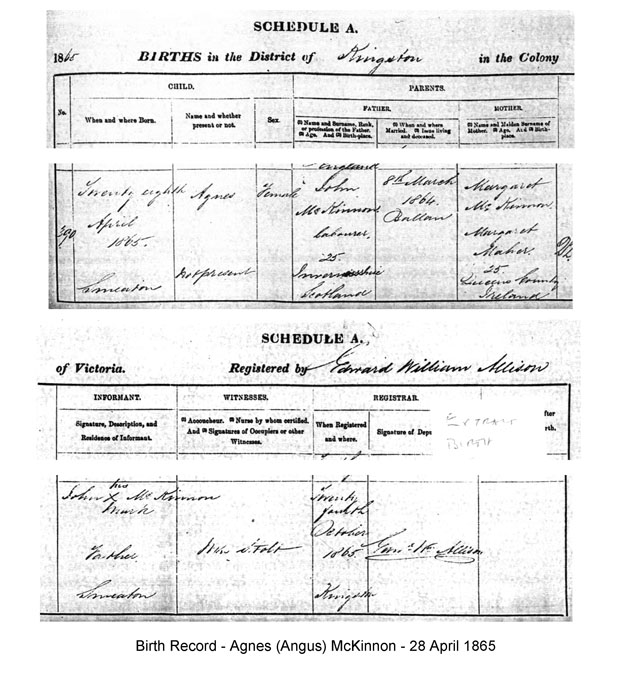 SCHEDULE A.
1865 BIRTHS in the District of Kingston in the Colony
CHILD. PARENTS.
FATHER. MOTHER.
No. When and where Born. Name and whether present or not. Sex. (1) Name and Surname, Rank, or profession of the Father. (2) Age. And (3) Birth-place. (1) When and where Married. (2) Issue living and deceased. (1) Name and Maiden Surname of Mother. (2) Age. And (3) Birth-place.
England
Twenty eighth Agnes Female John 8th March Margaret
April McKinnon 1864 Mc Kinnon
390 1865. labourer, Ballan Margaret
Maher
25 25
Smeaton Not present Inverness shire Queens County
Scotland Ireland
SCHEDULE A.
of Victoria. Registered by Edward William Allison
INFORMANT. WITNESSES. REGISTRAR.
Signature, Description, and Residence of Informant. (1) Accoucheur. (2) Nurse by whom certified. And (3) Signatures of Occupiers or other Witnesses. When Registered and where. Signature of Depu fter rth.
EXTRACT
BIRTH
his
John X Mc Kinnon Twenty
mark fourth
October
Father Mrs 1865 Wm Allison
Smeaton Kingston
Birth Record - Agnes (Angus) McKinnon - 28 April 1865